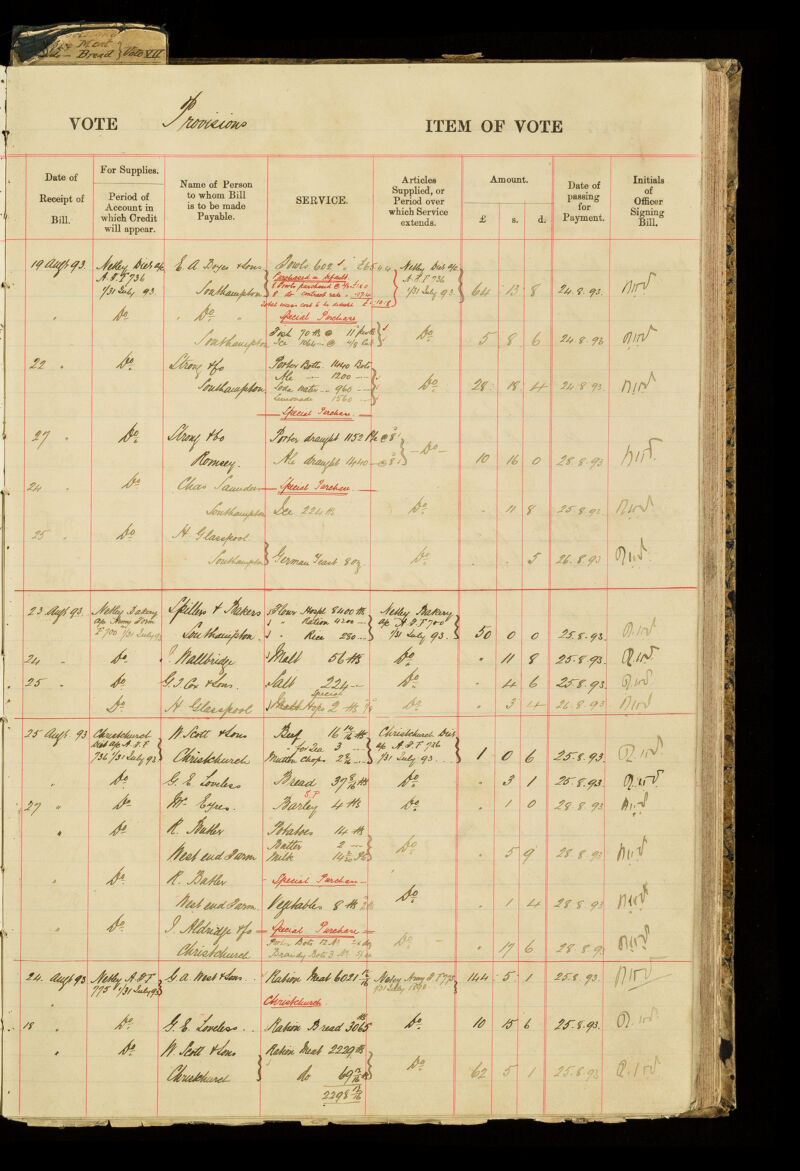 Meat
Bread } Vote VII
VOTE Provisions ITEM OF VOTE
Date of Receipt of Bill.
For Supplies.
Period of Account in which Credit will appear.
Name of Person to whom Bill is to be made Payable.
SERVICE.
Articles Supplied, or Period over which Service extends.
Amount.
£ s. d.
Date of passing for Payment.
Initials of Officer Signing Bill.
19 Augt 93 Netley Diet a/c E. A. Boyes & Sons Fowls 602 Netley Diet a/c
A.B.F 736 Purchased in default A.B.F 736
1/31 July 93 Southampton 1/31 July 93 64 13 8 24.8.93
" Do " Do " Special Purchase
Southampton Pork 70 lb @ Do 5 8 6 24.8.93
Ice
22 " Do Strong & Co Porter Botts 1440 Bots
Ale 1200
Southampton Soda water 960 Do 28 18 4 24.8.93
Lemonade 1560
Special Purchase
27 " Do Strong & Co Porter draught 1152 Pts @ 8
Romsey. Ale draught 1440 @ 8 Do 10 16 0 28.8.93
24 " Do Chas Saunders Special Purchase
Southampton Ice 224 lb Do " 11 8 25.8.93
25 " Do H Glasspool
Southampton German Yeast 8 oz Do . . 5 26.8.93
23 Augt 93 Netley Bakery Spillers & Bakers Flour Hospl 8400 lb Netley Bakery
a/c Army Form " Ration 4200 a/c A.B.F 700
F 700 1/31 July 93 Southampton " Rice 280 1/31 July 93. 50 0 0 25.8.93.
24 " Do J Wallbridge Malt 56 lbs Do " 11 8 25.8.93.
25 " Do G. J. Cox & Sons. Salt 224 Do " 4 6 25.8.93
Special
" Do H Glasspool Hops 2 lb Do " 3 4 26.8.93
25 Augt 93 Christchurch W. Scott & Sons Beef 16 14/16 lb Christchurch Diet
Diet a/c A.B.F " for Tea 3 a/c A.B.F 736
736 1/31 July 93 Christchurch Mutton Chops 1/31 July 93 1 0 6 25.8.93.
" Do G. E. Loveless Bread 37 8/16 lb Do " 3 1 25.8.93.
S.P
27 " Do W. Eyres. Barley 4 lb Do " 1 0 28.8.93
" Do R. Butler Potatoes 14 lb
Butter 2
West end Farm Milk Do " 5 9 28.8.93
" Do R. Butler Special Purchase
West end Farm Vegetables 8 lb Do " 1 4 28.8.93
" Do J. Aldridge & Co Special Purchase
Christchurch Porter Bots 12 No
Brandy Bots 3 No Do " 17 6 28.8.93
24 Augt 93 Netley A.B.F G. A. West & Sons Ration Meat 6021 Netley Army B.F 775 144 5 1 25.8.93
775 1/31 July 93 1/31 July 1893
" Christchurch.
18 Do G. E. Loveless Ration Bread 3065 lb Do 10 15 6 25.8.93.
" Do W. Scott & Sons Ration Meat 2229 lb
Christchurch do 69 12/16 lb Do 62 5 1 25.8.93
2298 12/16